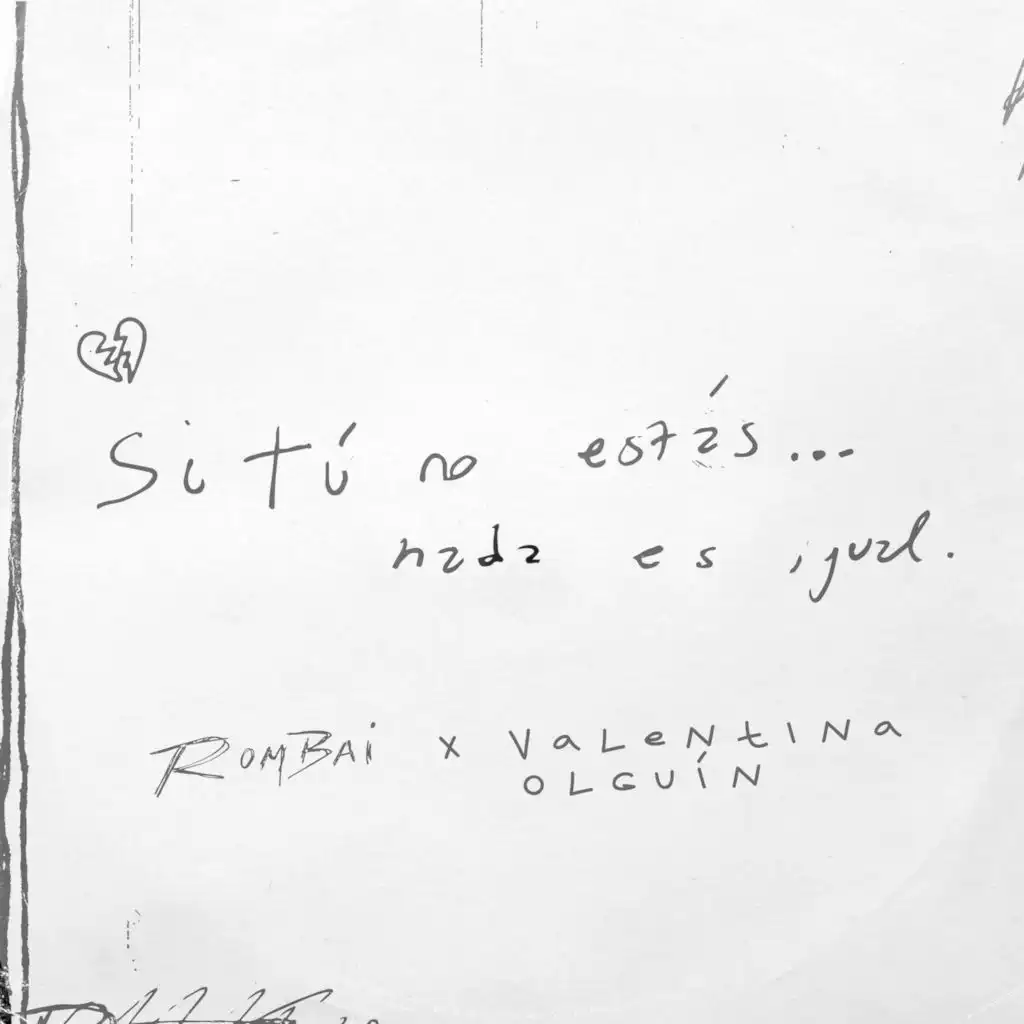 Si tú no estás...
nada es igual.
RomBai x VaLeNtINa
OLGUÍN